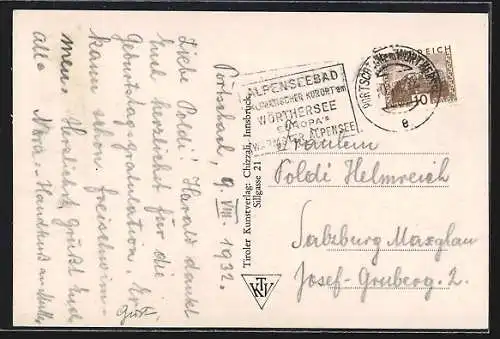 Pörtschach, 9. VIII. 1932.
Liebe Poldi! Harald dankt
herzlichst für die
Geburtstagsgratulation. Er
kann schon freischwim-
men. Herzlichst grüßt Euch
alle Nora. - Handkuss an Mutter
Gust.
Tiroler Kunstverlag: Chizzali, Innsbruck,
Sillgasse 21
KTV
ALPENSEEBAD
KURORT am
WÖRTHERSEE
EUROPA'S
WÄRMSTER ALPENSEE
PÖRTSCHACH AM WÖRTHERSEE
e
REICH
10
Fräulein
Poldi Helmreich
Salzburg Maxglan
Josef-Gruberg. 2.